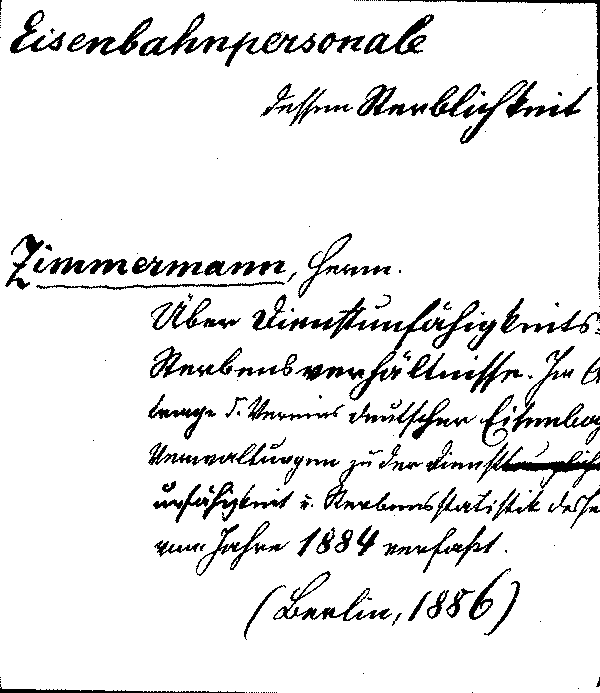 Eisenbahnpersonale
dessen Sterblichkeit
Zimmermann, Herm.
Über Dienstunfähigkeits-
Sterbensverhältnisse. Im A
trage d. Vereins deutscher Eisenba
Verwaltungen zu der Dienst
unfähigkeit u. Sterbensstatistik desse
vom Jahre 1884 verfaßt.
(Berlin, 1886)